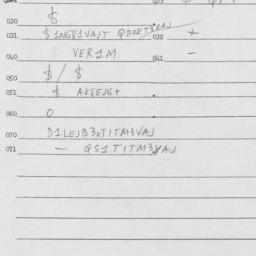 030 $
031 $1NG81VAJT 032 +
040 VER1M 041 -
050 $/$
051 $ AK8EJG+
060 O
070 D1LEJB3RTITM3VAJ
071 - QS1TITM3VAJ